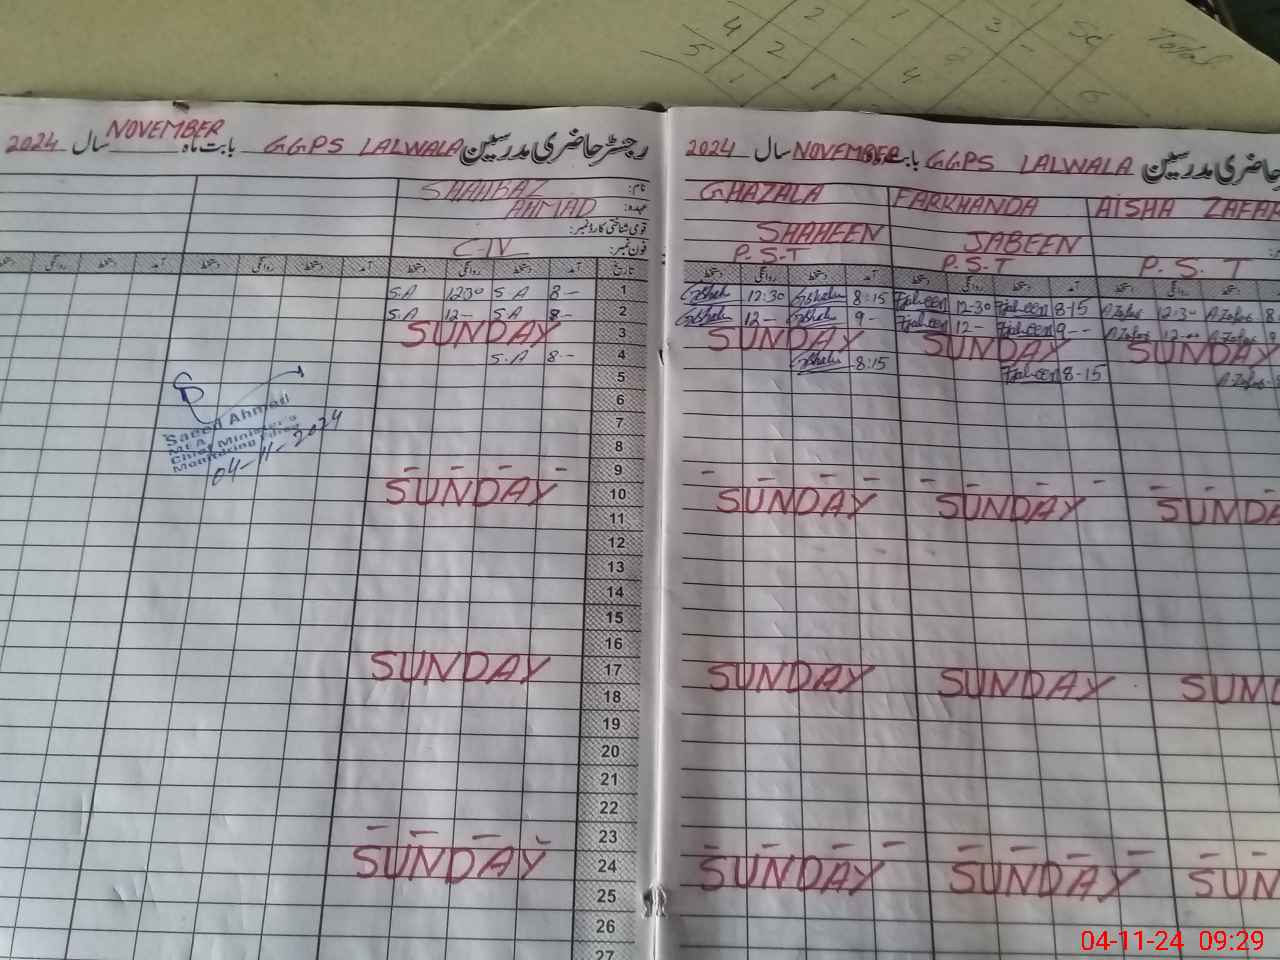 4 2 1 3 Sc Total
5 2 - 2 -
1 1 4 6
رجسٹر حاضری مدرسین GGPS LALWALA بابت ماہ NOVEMBER سال 2024
نام: SHAHBAZ
عہدہ: AHMAD
قومی شناختی کارڈ نمبر:
فون نمبر: C-IV
تاریخ آمد دستخط روانگی دستخط آمد دستخط روانگی دستخط آمد دستخط روانگی
1 8- S.A 12:30 S.A
2 8- S.A 12- S.A
3 SUNDAY
4 8- S.A
5
6
7
8
9 - - - -
10 SUNDAY
11
12
13
14
15
16
17 SUNDAY
18
19
20
21
22
23 - - - -
24 SUNDAY
25
26
27
Saeed Ahmed
MEA
Chief Minister's
Monitoring Force
04-11-2024
حاضری مدرسین GGPS LALWALA بابت ماہ NOVEMBER سال 2024
GHAZALA FARKHANDA AISHA ZAFAR
SHAHEEN JABEEN
P.S.T P.S.T P.S.T
دستخط روانگی دستخط آمد دستخط روانگی دستخط آمد دستخط روانگی دستخط
GShah 12:30 GShah 8:15 Fjabeen 12-30 Fjabeen 8-15 A Zafar 12:30 A Zafar 8
GShah 12- GShah 9- Fjabeen 12- Fjabeen 9-- A Zafar 12-00 A Zafar 9
SUNDAY SUNDAY SUNDAY
GShah 8:15 Fjabeen 8-15 A Zafar 8
- - - - - - - - - - -
SUNDAY SUNDAY SUNDA
SUNDAY SUNDAY SUN
- - - - - - - - - - -
SUNDAY SUNDAY SUN
04-11-24 09:29